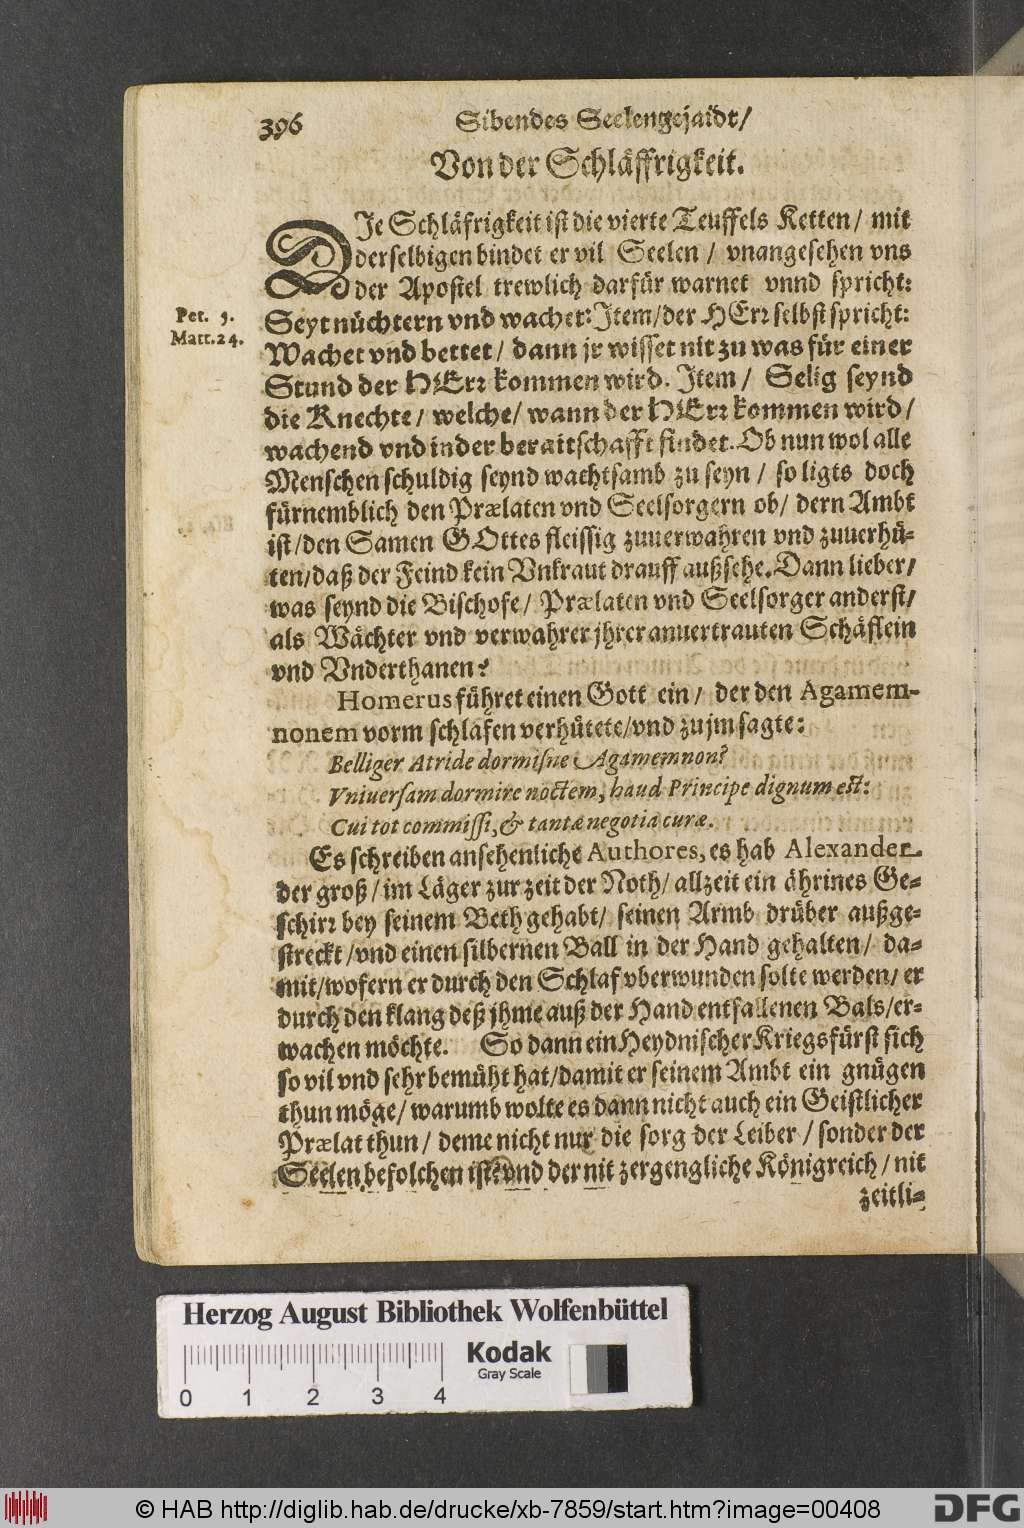 396 Sibendes Seelengejaidt/
Von der Schläffrigkeit.
DJe Schläfrigkeit ist die vierte Teuffels Ketten/ mit
derselbigen bindet er vil Seelen / vnangesehen vns
der Apostel trewlich darfür warnet vnnd spricht:
Pet. 5. Seyt nüchtern vnd wachet: Jtem/der HErꝛ selbst spricht:
Matt. 24. Wachet vnd bettet/ dann jr wisset nit zu was für einer
Stund der HErꝛ kommen wird. Jtem/ Selig seynd
die Knechte/ welche/ wann der HErꝛ kommen wird/
wachend vnd in der beraitschafft findet. Ob nun wol alle
Menschen schuldig seynd wachtsamb zu seyn / so ligts doch
fürnemblich den Prælaten vnd Seelsorgern ob/ dern Ambt
ist/den Samen GOttes fleissig zuuerwahren vnd zuuerhü-
ten/daß der Feind kein Vnkraut drauff außsehe. Dann lieber/
was seynd die Bischofe/ Prælaten vnd Seelsorger anderst/
als Wächter vnd verwahrer jhrer anuertrauten Schäflein
vnd Vnderthanen?
Homerus führet einen Gott ein/ der den Agamem-
nonem vorm schlafen verhütete/vnd zu jm sagte:
Belliger Atride dormisne Agamemnon?
Vniuersam dormire noctem, haud Principe dignum est:
Cui tot commissi, & tantæ negotia curæ.
Es schreiben ansehenliche Authores, es hab Alexander
der groß/ im Läger zur zeit der Noth/ allzeit ein ährines Ge-
schirꝛ bey seinem Beth gehabt/ seinen Armb drüber außge-
streckt/vnd einen silbernen Ball in der Hand gehalten/ da-
mit/wofern er durch den Schlaf vberwunden solte werden/ er
durch den klang deß jhme auß der Hand entfallenen Bals/er-
wachen möchte. So dann ein Heydnischer Kriegsfürst sich
so vil vnd sehr bemüht hat/damit er seinem Ambt ein gnügen
thun möge/ warumb wolte es dann nicht auch ein Geistlicher
Prælat thun/ deme nicht nur die sorg der Leiber/ sonder der
Seelen befolchen ist: vnd der nit zergengliche Königreich/ nit
zeitli-
Herzog August Bibliothek Wolfenbüttel
Kodak
Gray Scale
0 1 2 3 4
© HAB http://diglib.hab.de/drucke/xb-7859/start.htm?image=00408
DFG